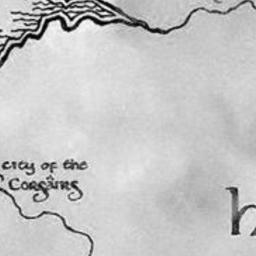 City of the
Corsairs
h